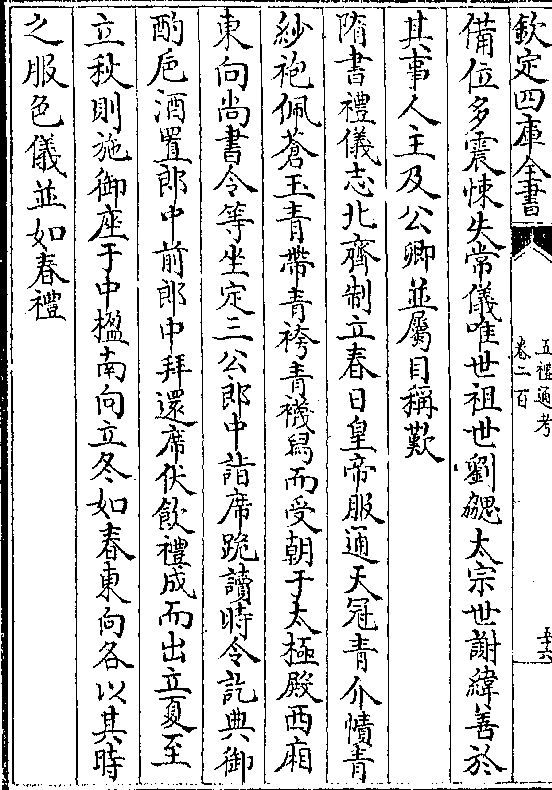 欽定四庫全書
五禮通考
卷二百
五十六
備位多震悚失常儀唯世祖世劉勰太宗世謝緯善於
其事人主及公卿並屬目稱歎
隋書禮儀志北齊制立春日皇帝服通天冠青介幘青
紗袍佩蒼玉青帶青袴青襪舄而受朝于太極殿西廂
東向尚書令等坐定三公郎中詣席跪讀時令訖典御
酌巵酒置郎中前郎中拜還席伏飲禮成而出立夏至
立秋則施御座于中楹南向立冬如春東向各以其時
之服色儀並如春禮